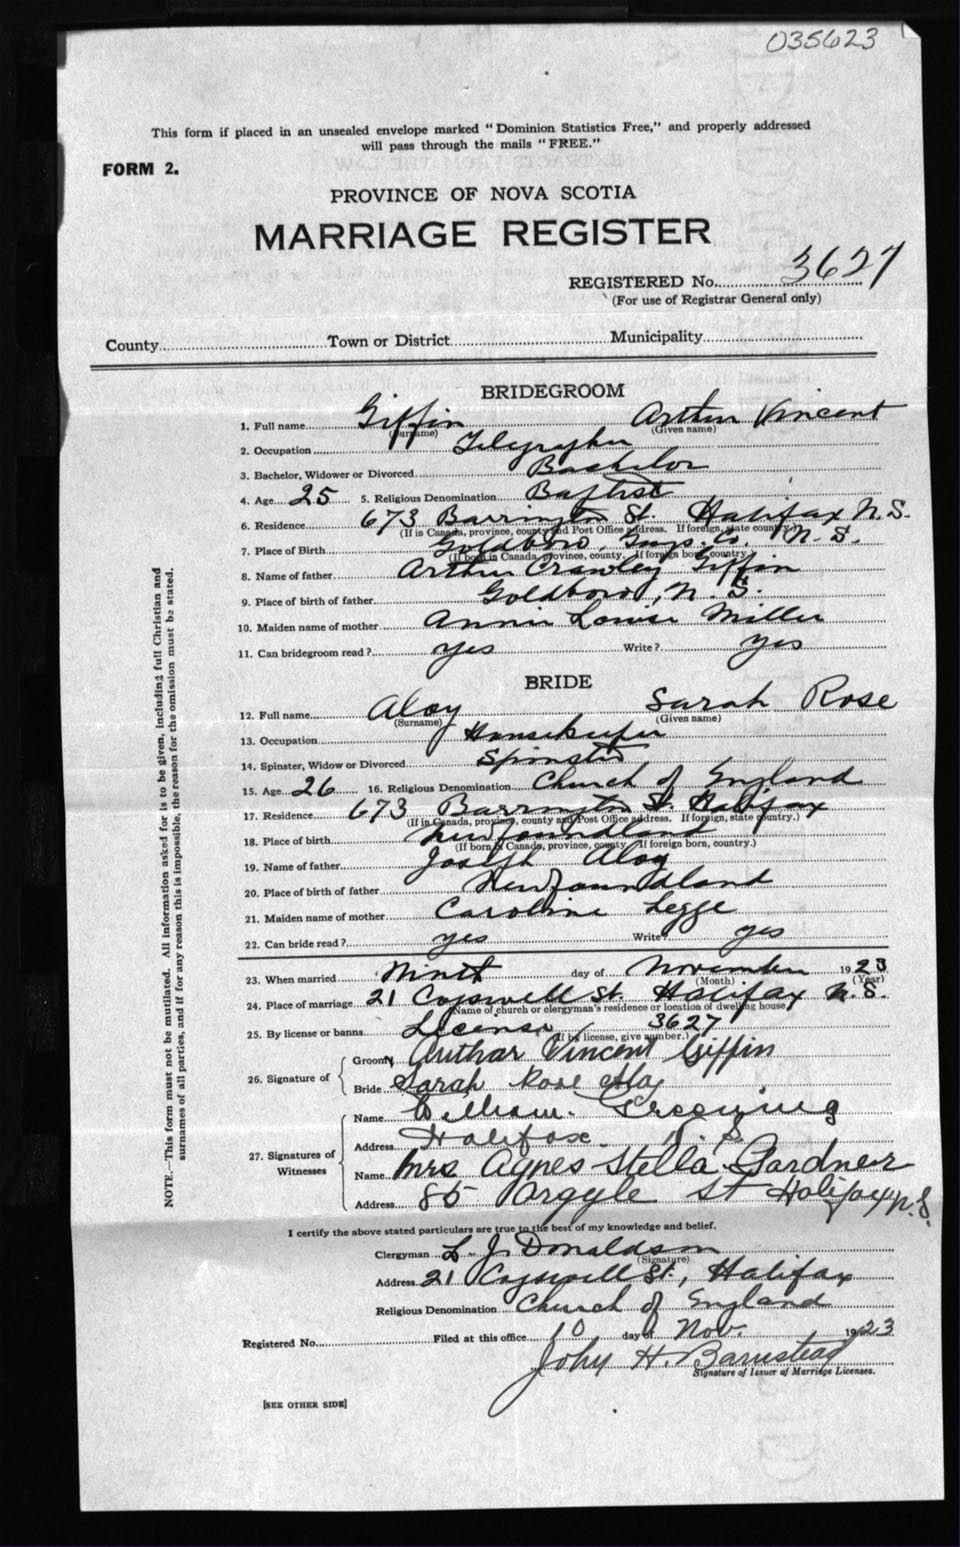 035623
This form if placed in an unsealed envelope marked "Dominion Statistics Free," and properly addressed
will pass through the mails "FREE."
FORM 2.
PROVINCE OF NOVA SCOTIA
MARRIAGE REGISTER
REGISTERED No. 3627
(For use of Registrar General only)
County Town or District Municipality
BRIDEGROOM
1. Full name Giffin Arthur Vincent
(Surname) (Given name)
2. Occupation Telegrapher
3. Bachelor, Widower or Divorced Bachelor
4. Age 25 5. Religious Denomination Baptist
6. Residence 673 Barrington St. Halifax N.S.
(If in Canada, province, county and Post Office address. If foreign, state country.)
7. Place of Birth Goldboro, Guys. Co. N.S.
(If born in Canada, province, county. If foreign born, country.)
8. Name of father Arthur Crawley Giffin
9. Place of birth of father Goldboro, N.S.
10. Maiden name of mother Annie Louise Miller
11. Can bridegroom read? yes Write? yes
BRIDE
12. Full name Aloy Sarah Rose
(Surname) (Given name)
13. Occupation Housekeeper
14. Spinster, Widow or Divorced Spinster
15. Age 26 16. Religious Denomination Church of England
17. Residence 673 Barrington St. Halifax
(If in Canada, province, county and Post Office address. If foreign, state country.)
18. Place of birth Newfoundland
(If born in Canada, province, county. If foreign born, country.)
19. Name of father Joseph Aloy
20. Place of birth of father Newfoundland
21. Maiden name of mother Caroline Legge
22. Can bride read? yes Write? yes
23. When married Ninth day of November 1923
(Month) (Year)
24. Place of marriage 21 Cogswell St. Halifax N.S.
(Name of church or clergyman's residence or location of dwelling house)
25. By license or banns License 3627
(If by license, give number.)
26. Signature of Groom Arthur Vincent Giffin
Bride Sarah Rose Aloy
27. Signatures of Witnesses
Name William Greening
Address Halifax. N.S.
Name Mrs Agnes Stella Gardner
Address 85 Argyle St Halifax N.S.
I certify the above stated particulars are true to the best of my knowledge and belief.
Clergyman L. J. Donaldson
(Signature)
Address 21 Cogswell St., Halifax
Religious Denomination Church of England
Registered No. Filed at this office 10 day of Nov. 1923
John H. Barnstead
Signature of Issuer of Marriage Licenses.
[SEE OTHER SIDE]
NOTE.—This form must not be mutilated. All information asked for is to be given, including full Christian and
surnames of all parties, and if for any reason this is impossible, the reason for the omission must be stated.